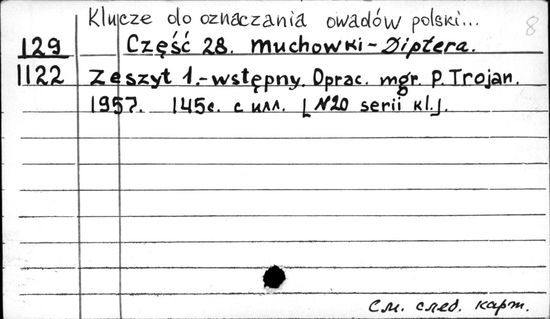 Klucze do oznaczania owadów polski...
8
129 Część 28. Muchowki-Diptera.
1122 Zeszyt 1.-wstępny. Oprac. mgr. P. Trojan.
1957. 145с. с илл. [N20 serii kl.].
См. след. карт.